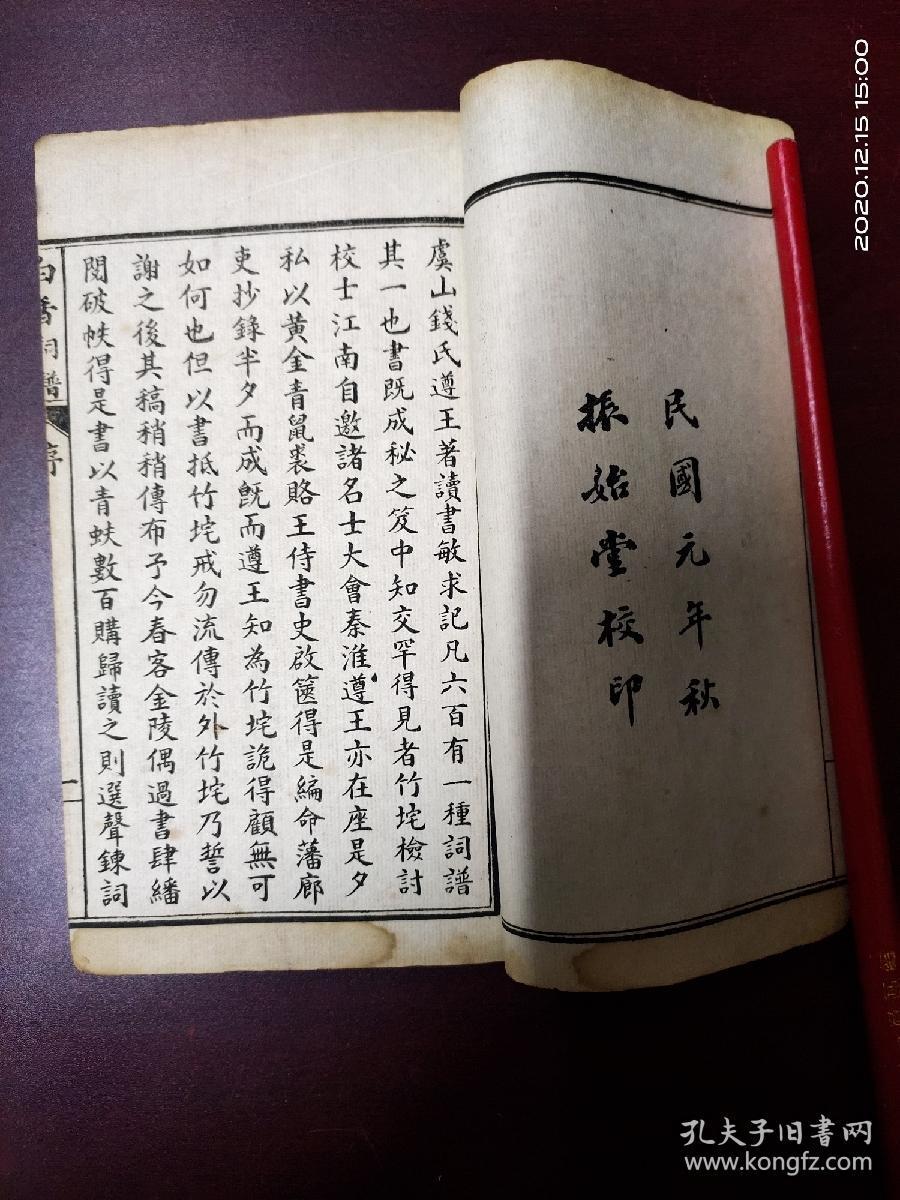 民國元年秋
振始堂校印
虞山錢氏遵王著讀書敏求記凡六百有一種詞譜
其一也書既成秘之笈中知交罕得見者竹垞檢討
校士江南自邀諸名士大會秦淮遵王亦在座是夕
私以黃金青鼠裘賂王侍書史啟篋得是編命藩廊
吏抄錄半夕而成旣而遵王知為竹垞詭得顧無可
如何也但以書抵竹垞戒勿流傳於外竹垞乃誓以
謝之後其稿稍稍傳布予今春客金陵偶過書肆繙
閱破帙得是書以青蚨數百購歸讀之則選聲鍊詞
白香詞譜 序
一
2020.12.15 15:00
孔夫子旧书网
www.kongfz.com